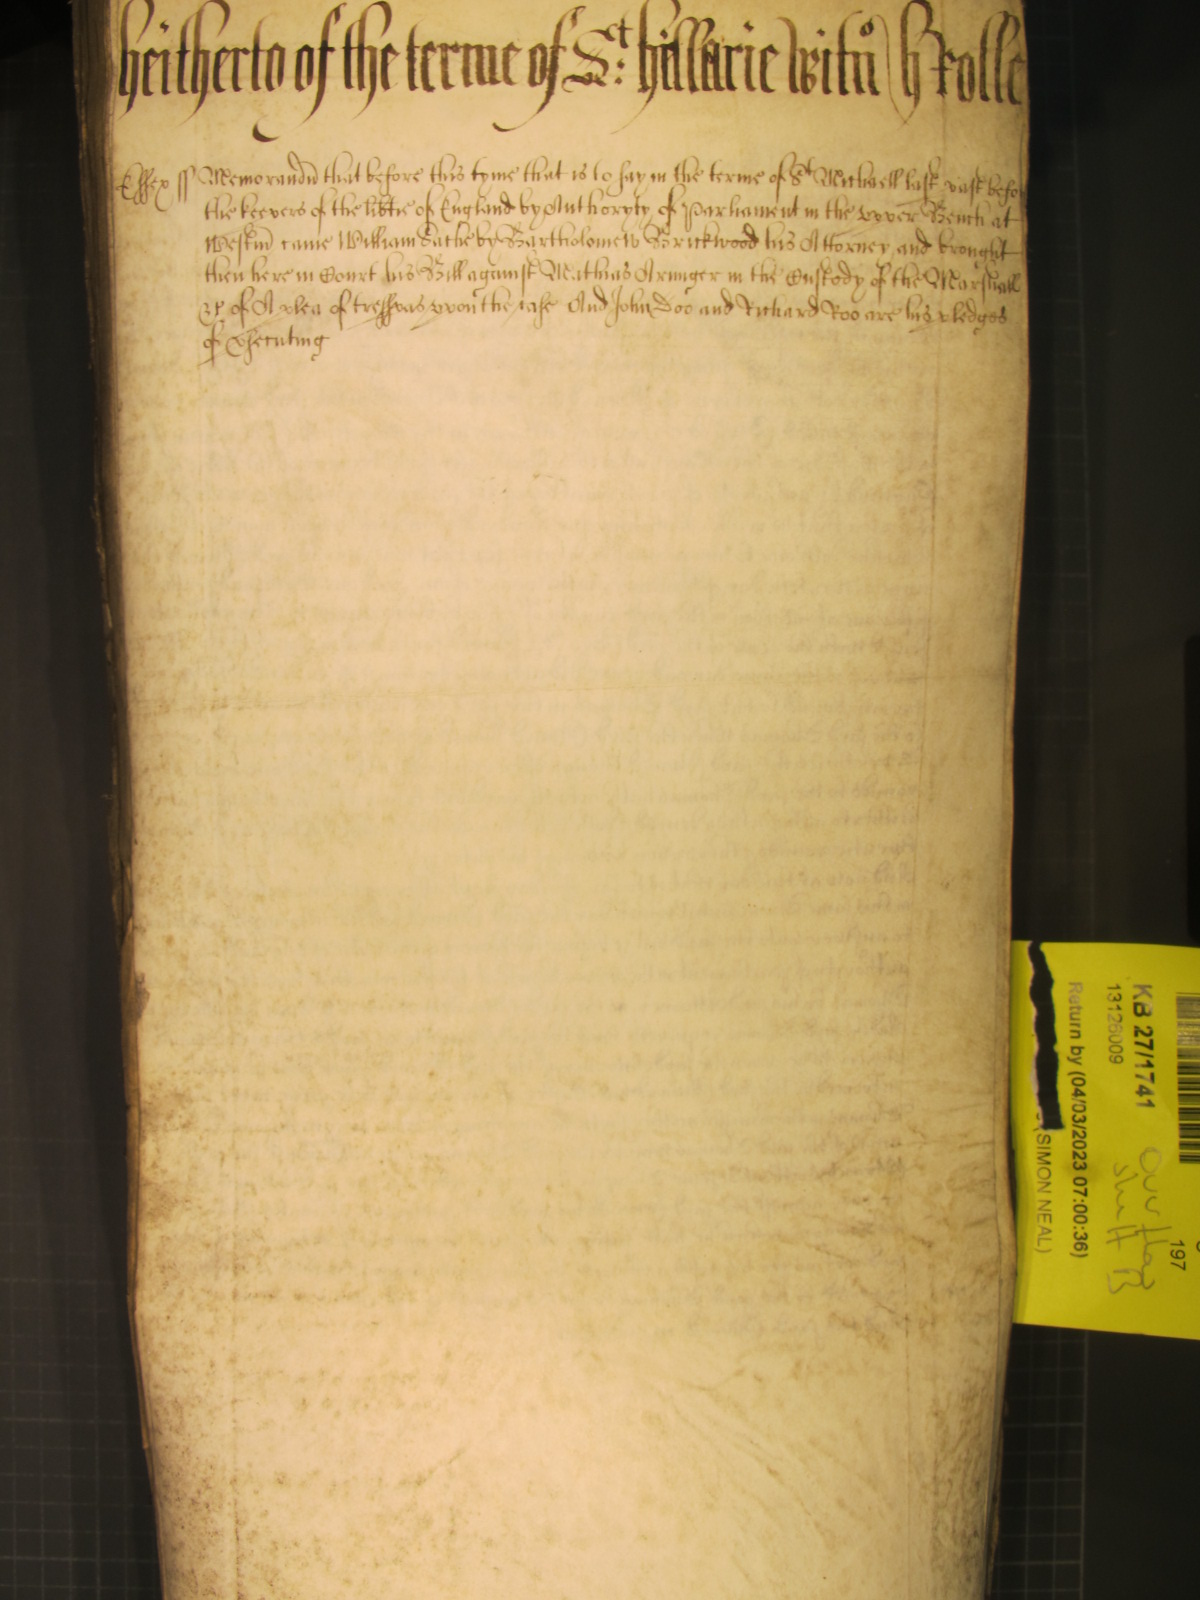 heitherto of the terme of St: hillarie witñ
Essex ss Memorandũ that before this tyme that is to say in the terme of St Michaell last past befor
the keepers of the libtie of England by Authoryty of Parliament in the upper Bench at
Westm̃ came William Sache by Bartholomew Brickwood his Attorney and brought
then here in Court his Bill against Mathias Aringer in the Custody of the Marshall
&c of A plea of tresspas upon the case And John Doo and Richard Roo are his pledges
of psecuting
KB 27/1741
13126009
Return by (04/03/2023 07:00:36)
(SIMON NEAL)
197